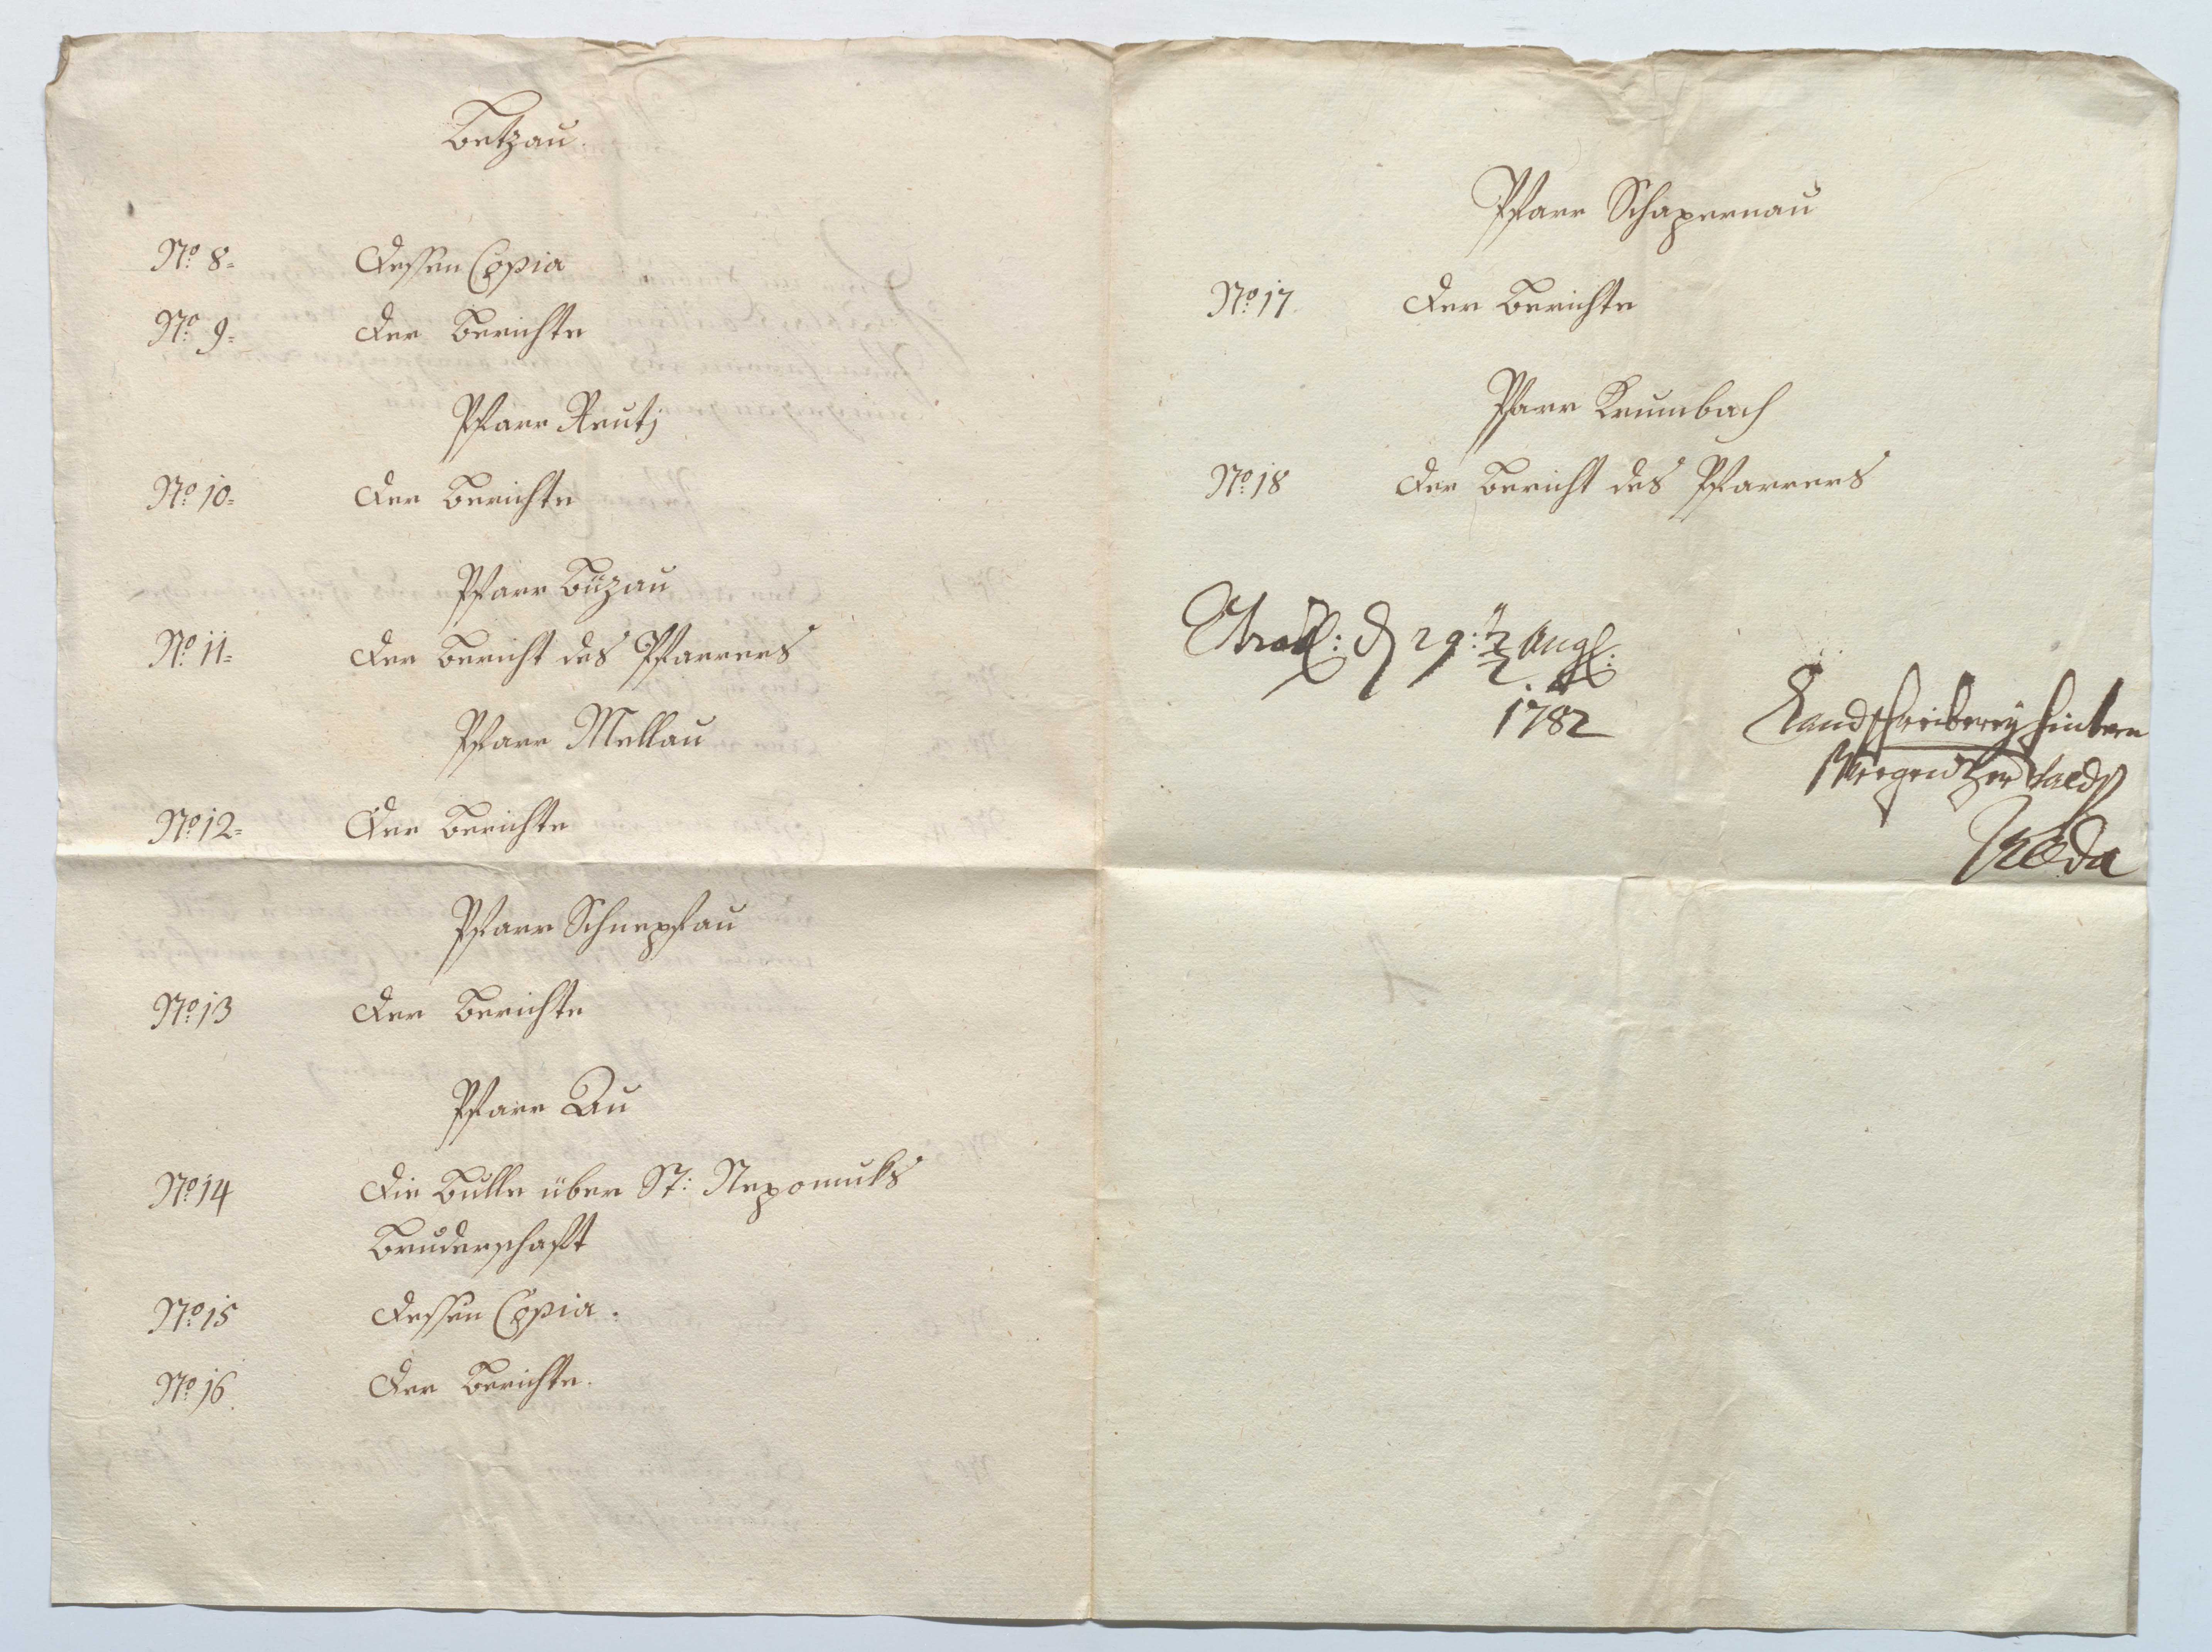 Betzau.
No. 8.
Dessen Copia
No. 9.
Der Berichte
Pfarr Reutj
No. 10.
Der Berichte
Pfarr Büzau
No. 11.
Der Bericht des Pfarrers
Pfarr Mellau
No. 12.
Der Berichte
Pfarr Schnepfau
No. 13
Der Berichte
Pfarr Au
No. 14
Die Bulle über St: Nepomuks
Bruderschaft
No. 15
Dessen Copia.
No. 16.
Der Berichte.
Pfarr Schapernau
No. 17.
Der Berichte
Pfarr Krumbach
No. 18
Der Bericht des Pfarrers
d 29:
1782
Landschreiberey hintern
Bregentzer